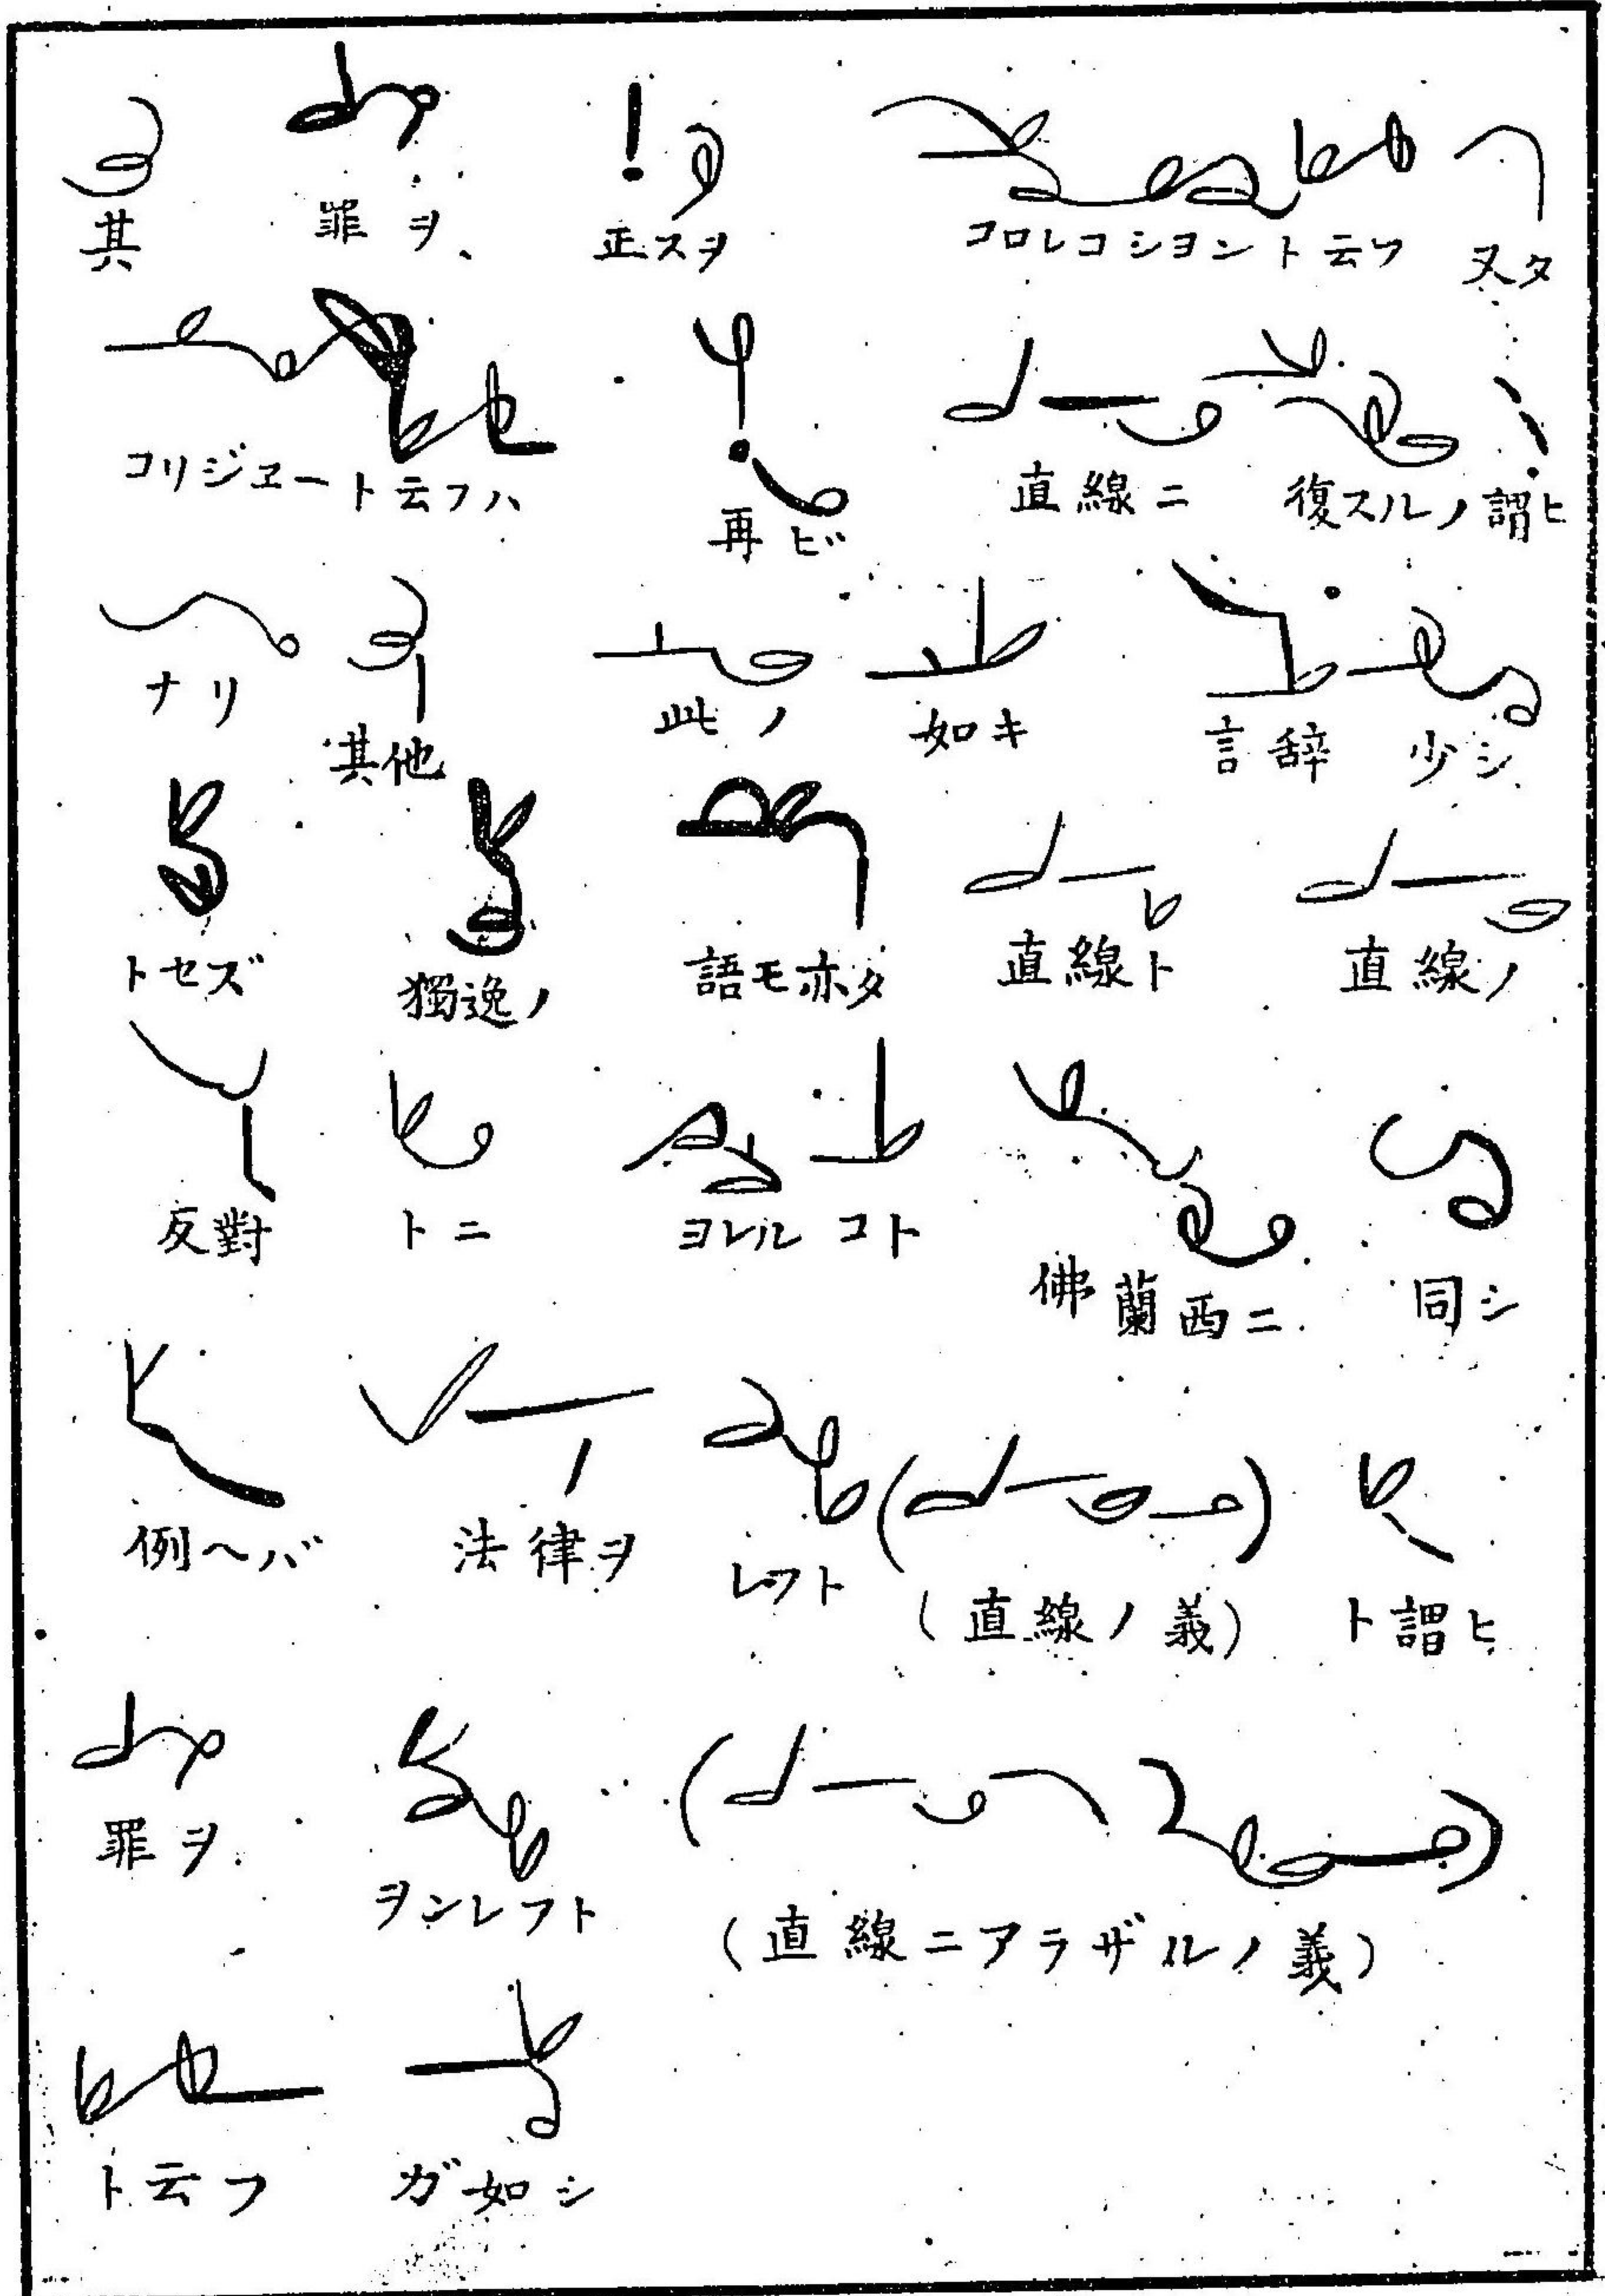 其 罪ヲ、 正スヲ コロレコションㇳ云フ 又タ
コリジエートト云フハ、 再ビ 直線ニ 復スルノ謂ヒ
ナリ 其他 此ノ 如キ 言辞 少シ
トセズ 獨逸ノ 語モ亦タ 直線ト 直線ノ
反對 トニ ヨレル コト 佛蘭西ニ 同シ
例ヘバ 法律ヲ レフト (直線ノ義) ト謂ヒ
罪ヲ ヲンレフト (直線ニアラザルノ義)
ト云フ ガ如シ